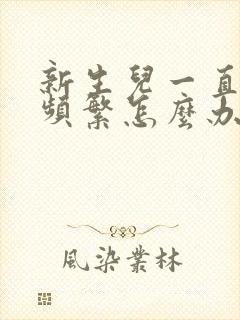 新生兒一直
頻繁怎麼办
風染叢林